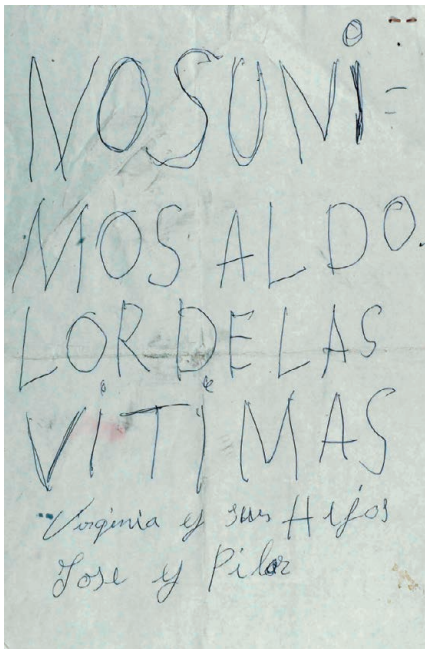 NOSUNi=
MOS AL DO
LOR DE LAS
ViTiMAS
Virginia y sus Hijos
Jose y Pilar